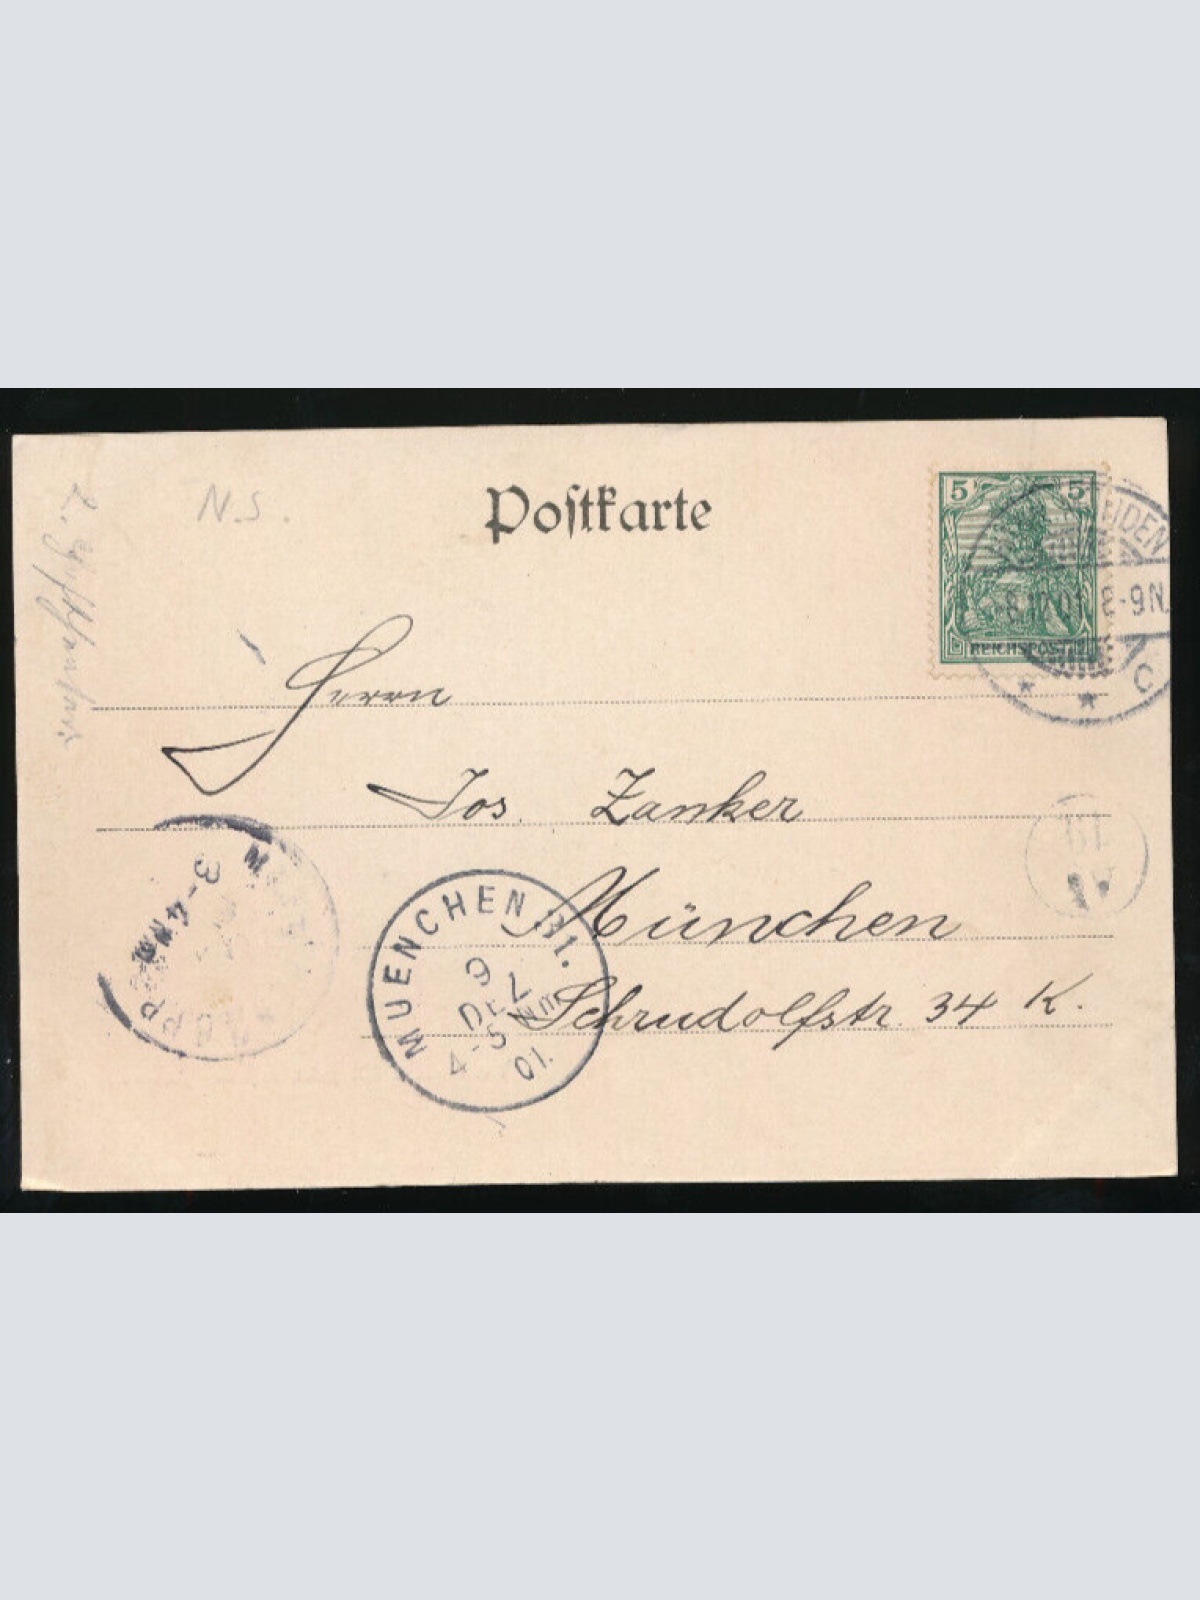 Postkarte
N.S.
5 5
REICHSPOST
8-9N.
C
Herrn
Jos. Zanker
München
Schrudolfstr. 34 K.
MUENCHEN 31.
9
DEZ
4-5 NM
01.
3-4NM